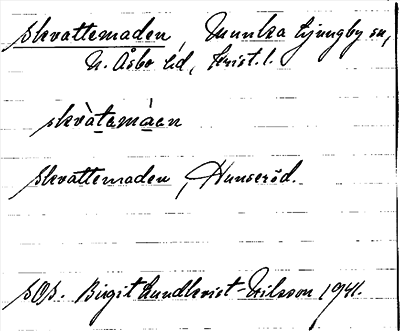 Skvattemaden, Munka Ljungby sn,
N. Åsbo hd, Krist. l.
skvàtemáen
Skvattemaden, Hunseröd.
SOS. Birgit Lundkvist-Nilsson 1941.